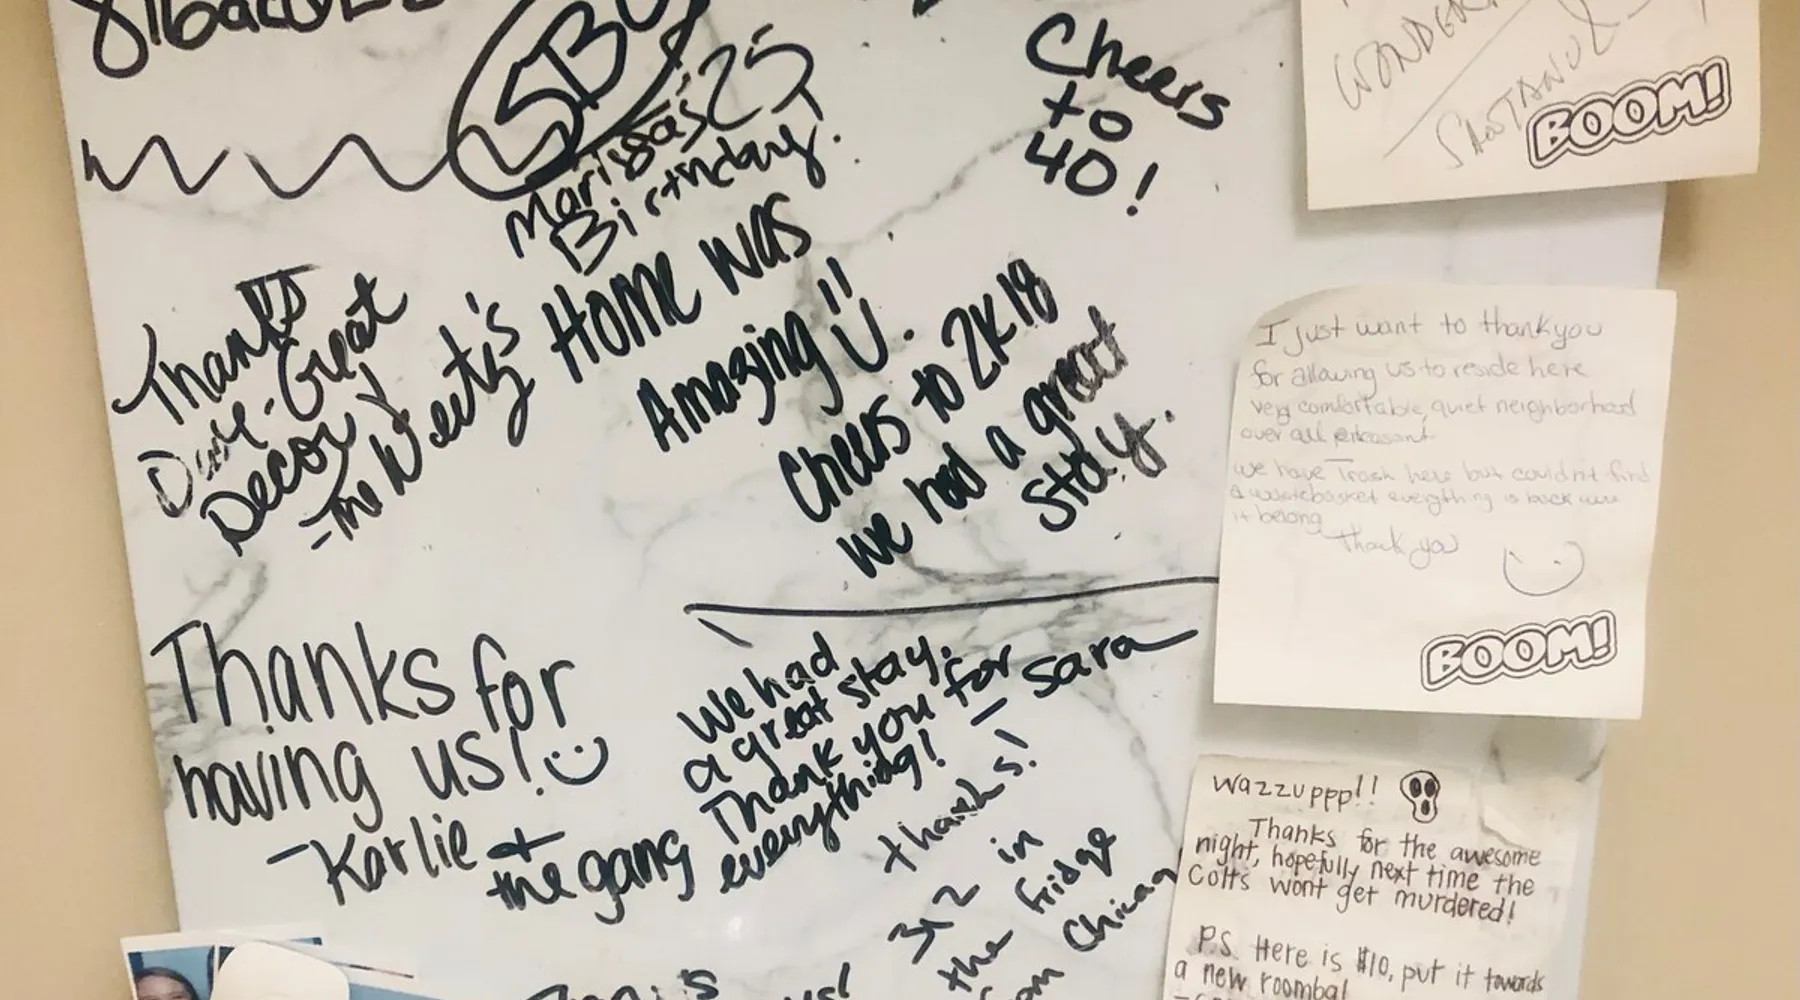 SBC
Marissa's 25
Birthday.
Cheers
to
40!
Thanks
Dave-Great
Decor!
-The Weetz's
Home was
Amazing
Cheers to 2K18
we had a great
stay.
Thanks for
having us!
-Karlie +
the gang
We had
a great stay.
Thank you for
everything!
- Sara
thanks!
312 in
the fridge
from Chicag
BOOM!
I just want to thank you
for allowing us to reside here
very comfortable, quiet neighborhood
over all pleasant
we have Trash here but couldn't find
a wastebasket everything is back
it belong
Thank you
BOOM!
Wazzuppp!!
Thanks for the awesome
night, hopefully next time the
Colts wont get murdered!
P.S. Here is $10, put it towards
a new roomba!